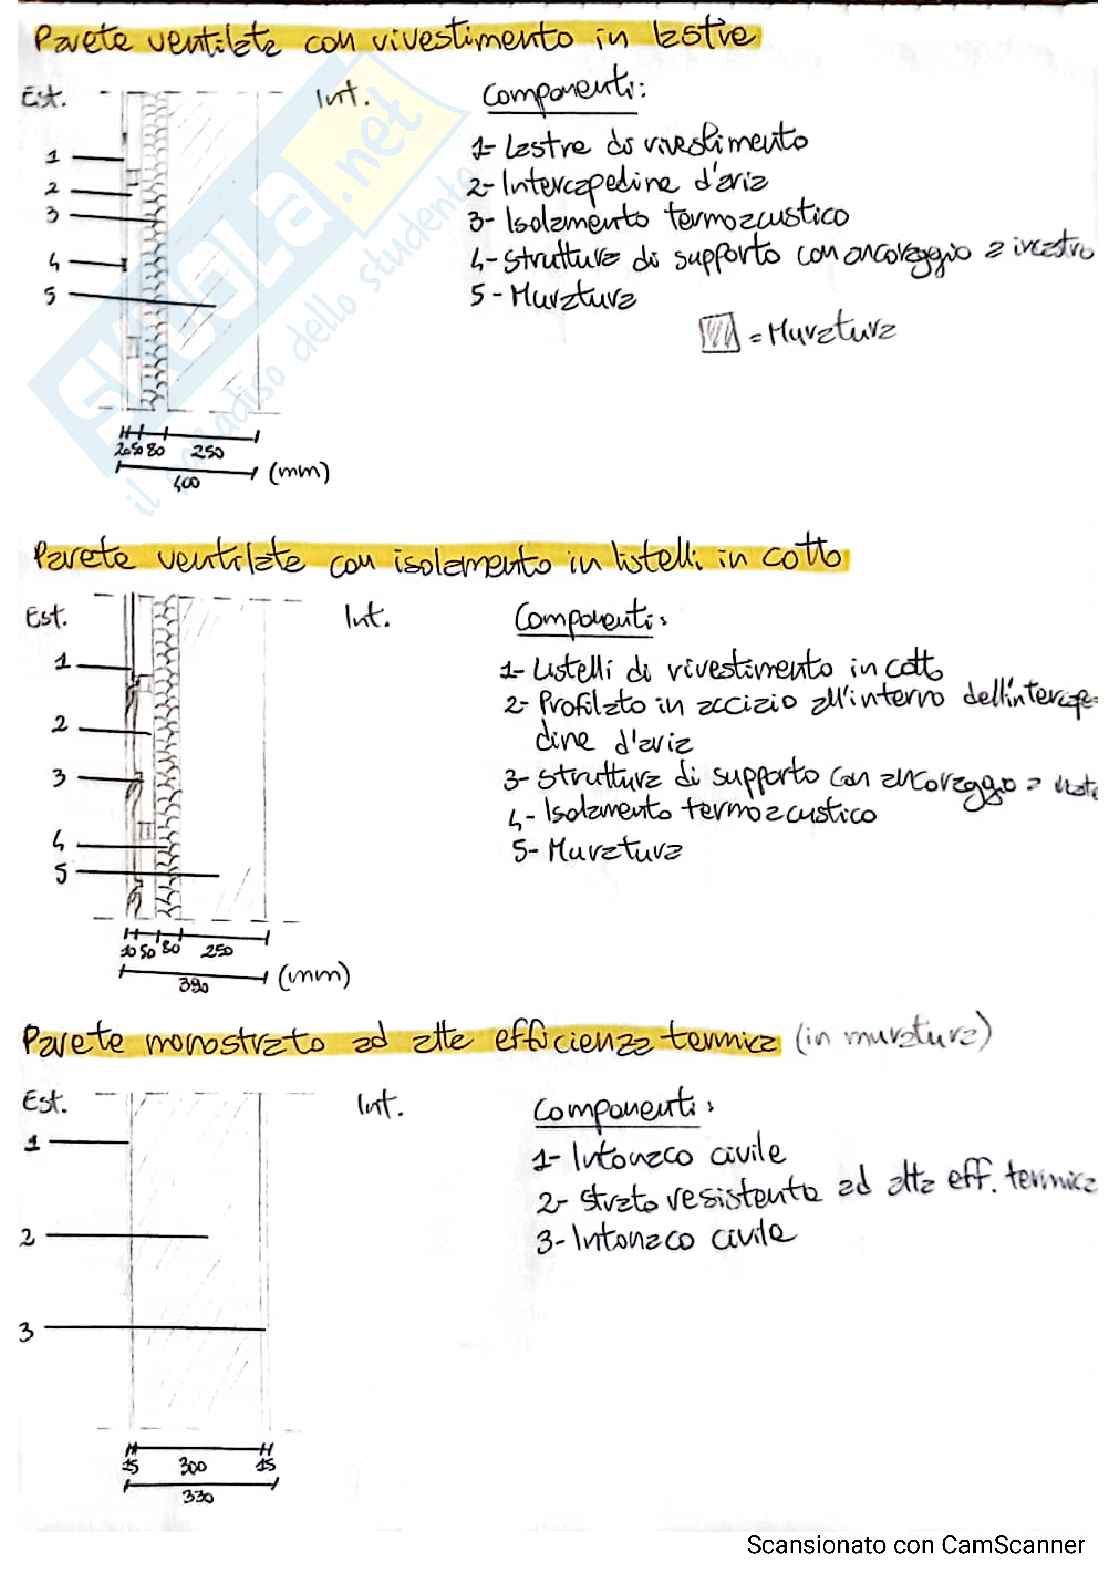 Parete ventilata con rivestimento in lastre
Est.
Int.
Componenti:
1
2
3
4
5
1- Lastre di rivestimento
2- Intercapedine d'aria
3- Isolamento termoacustico
4- Struttura di supporto con ancoraggio a incastro
5- Muratura
= Muratura
20 50 80 250
400
(mm)
SKUOLA.net
il paradiso dello studente
Parete ventilata con isolamento in listelli in cotto
Est.
Int.
Componenti:
1
2
3
4
5
1- Listelli di rivestimento in cotto
2- Profilato in acciaio all'interno dell'interape-
dine d'aria
3- Struttura di supporto con ancoraggio a
4- Isolamento termoacustico
5- Muratura
10 50 80 250
390
(mm)
Parete monostrato ad alta efficienza termica (in muratura)
Est.
Int.
Componenti:
1
2
3
1- Intonaco civile
2- Strato resistente ad alta eff. termica
3- Intonaco civile
15 300 15
330
Scansionato con CamScanner